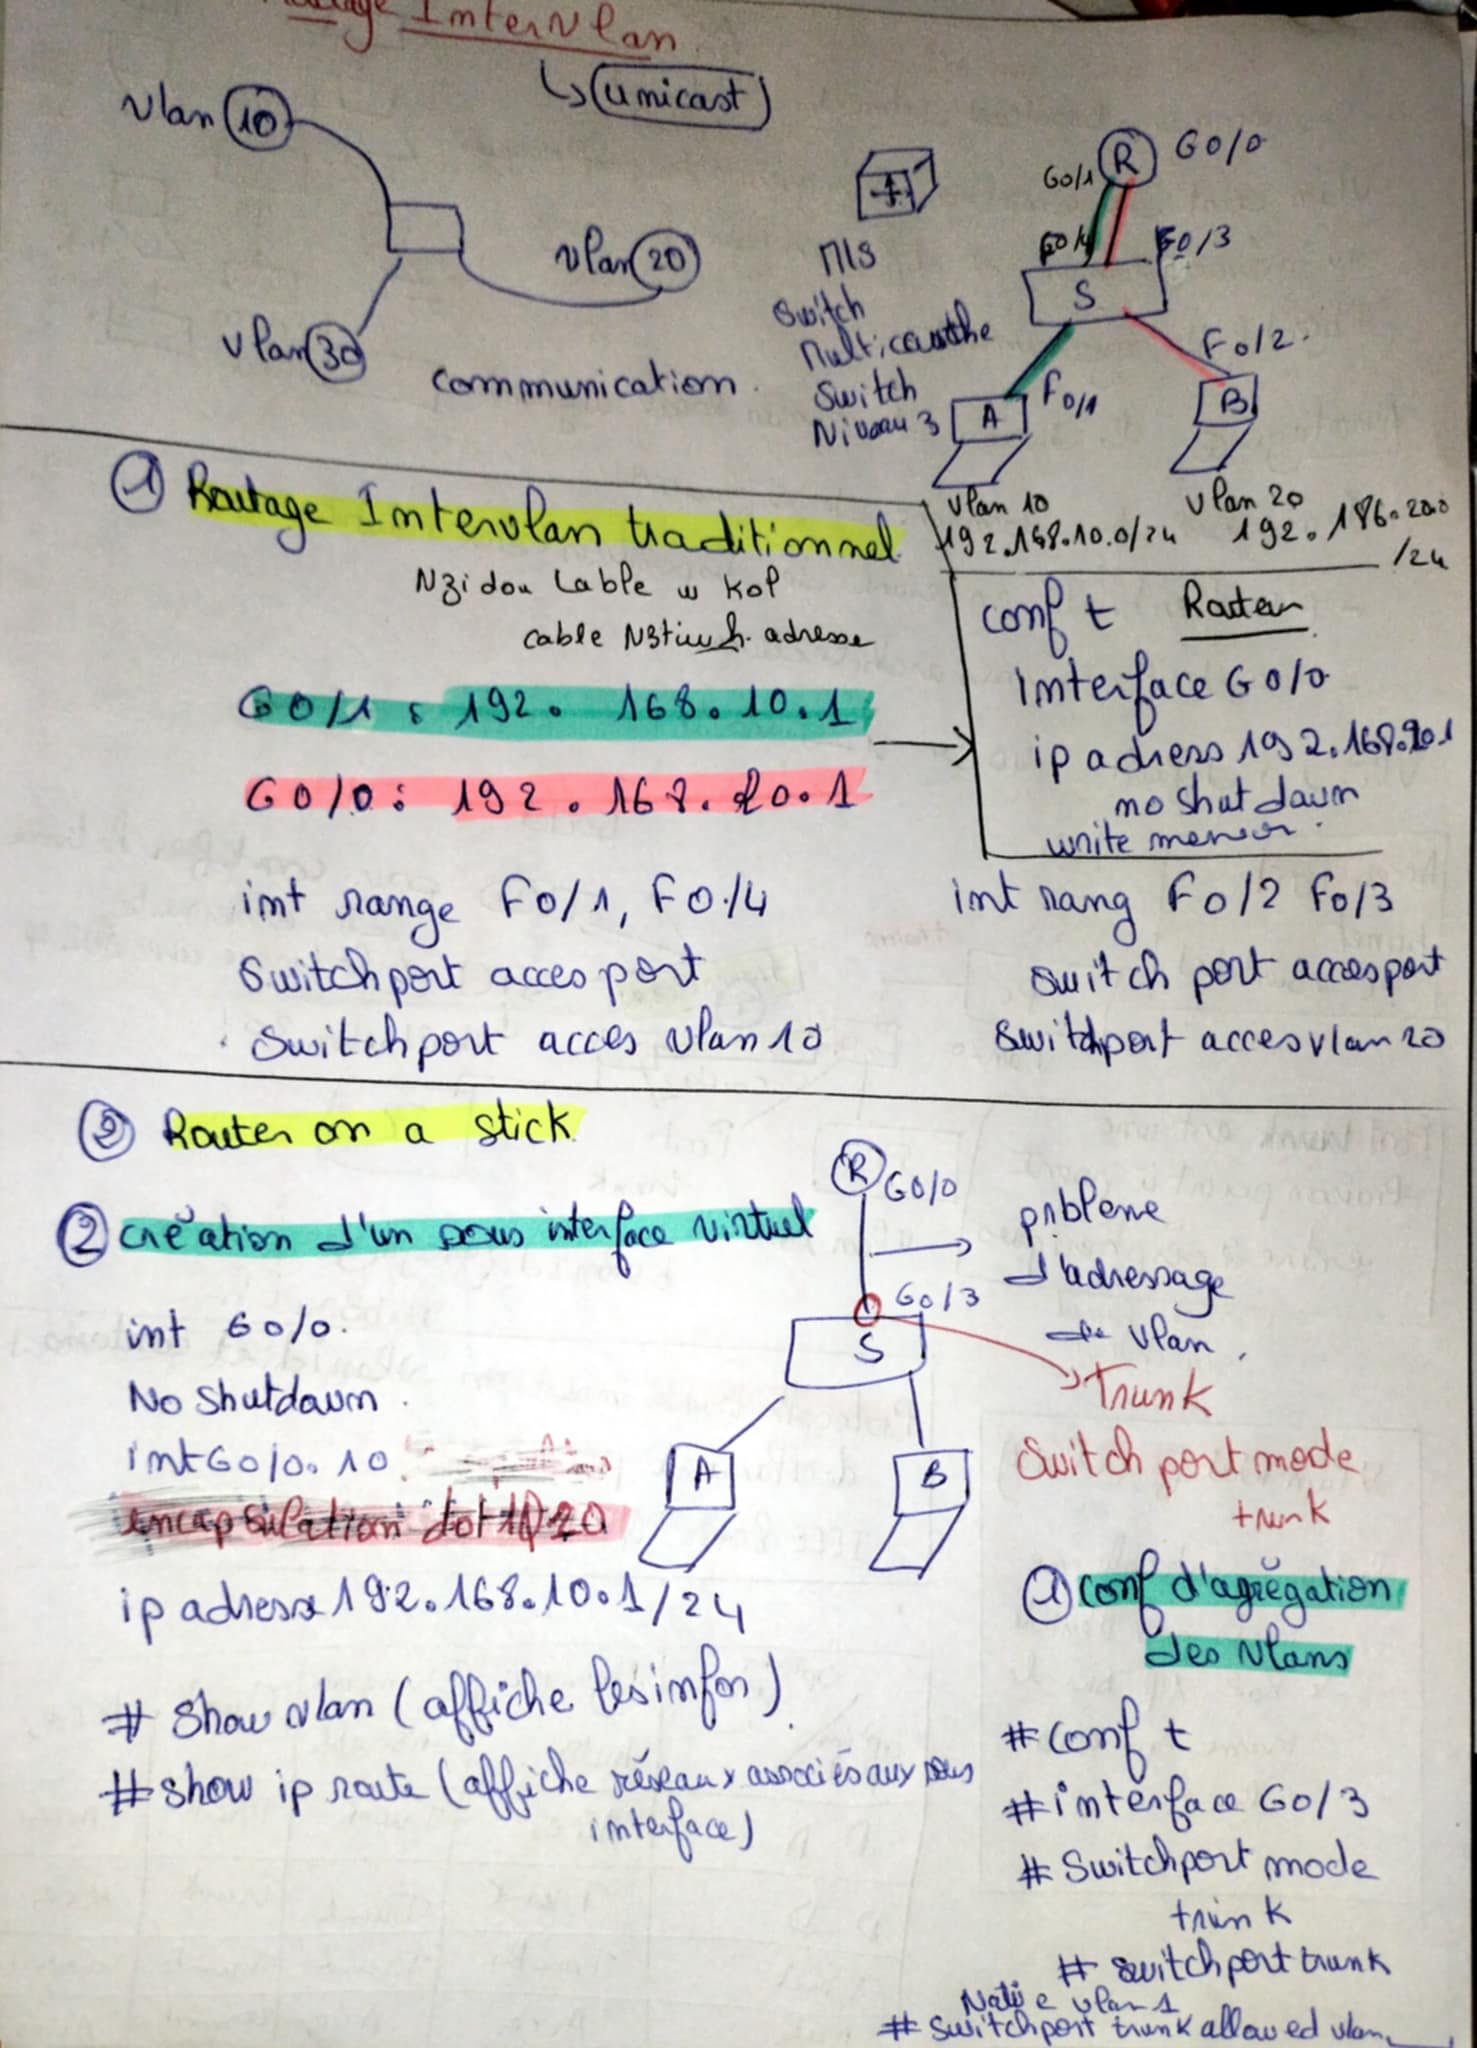 Routage InterVlan
↳ (unicast)
Vlan 10
Vlan 20
Vlan 30
communication.
MlS
Switch
Multicouthe
Switch
Niveau 3
R G0/0
G0/1
F0/3
S
F0/2.
A F0/1
B
Vlan 10
192.168.10.0/24
Vlan 20
192.186.20.0
/24
① Routage Intervlan traditionnel
Nzidou Cable w kol
cable adresse
G0/1 : 192. 168.10.1
G0/0 : 192.168.20.1
conf t Routeur
Interface G0/0
ip adress 192.168.20.1
no shutdown
write
int range F0/1, F0/4
Switchport acces port
Switchport acces vlan 10
int rang F0/2 F0/3
switch port acces port
Switchport acces vlan 20
② Router on a stick
② création d'un sous interface virtuel
int G0/0.
No Shutdown.
int G0/0.10.
encapsulation dot1Q
ip adress 192.168.10.1/24
# Show vlan (affiche les infos).
# show ip route (affiche réseaux associés aux sous
interface)
R G0/0
G0/3
S
A
B
probleme
d'adressage
de Vlan.
Trunk
Switch port mode
trunk
① conf d'agrégation
des Vlans
# conf t
# interface G0/3
# Switchport mode
trunk
# switchport trunk
Native vlan 1
# Switchport trunk allowed vlan